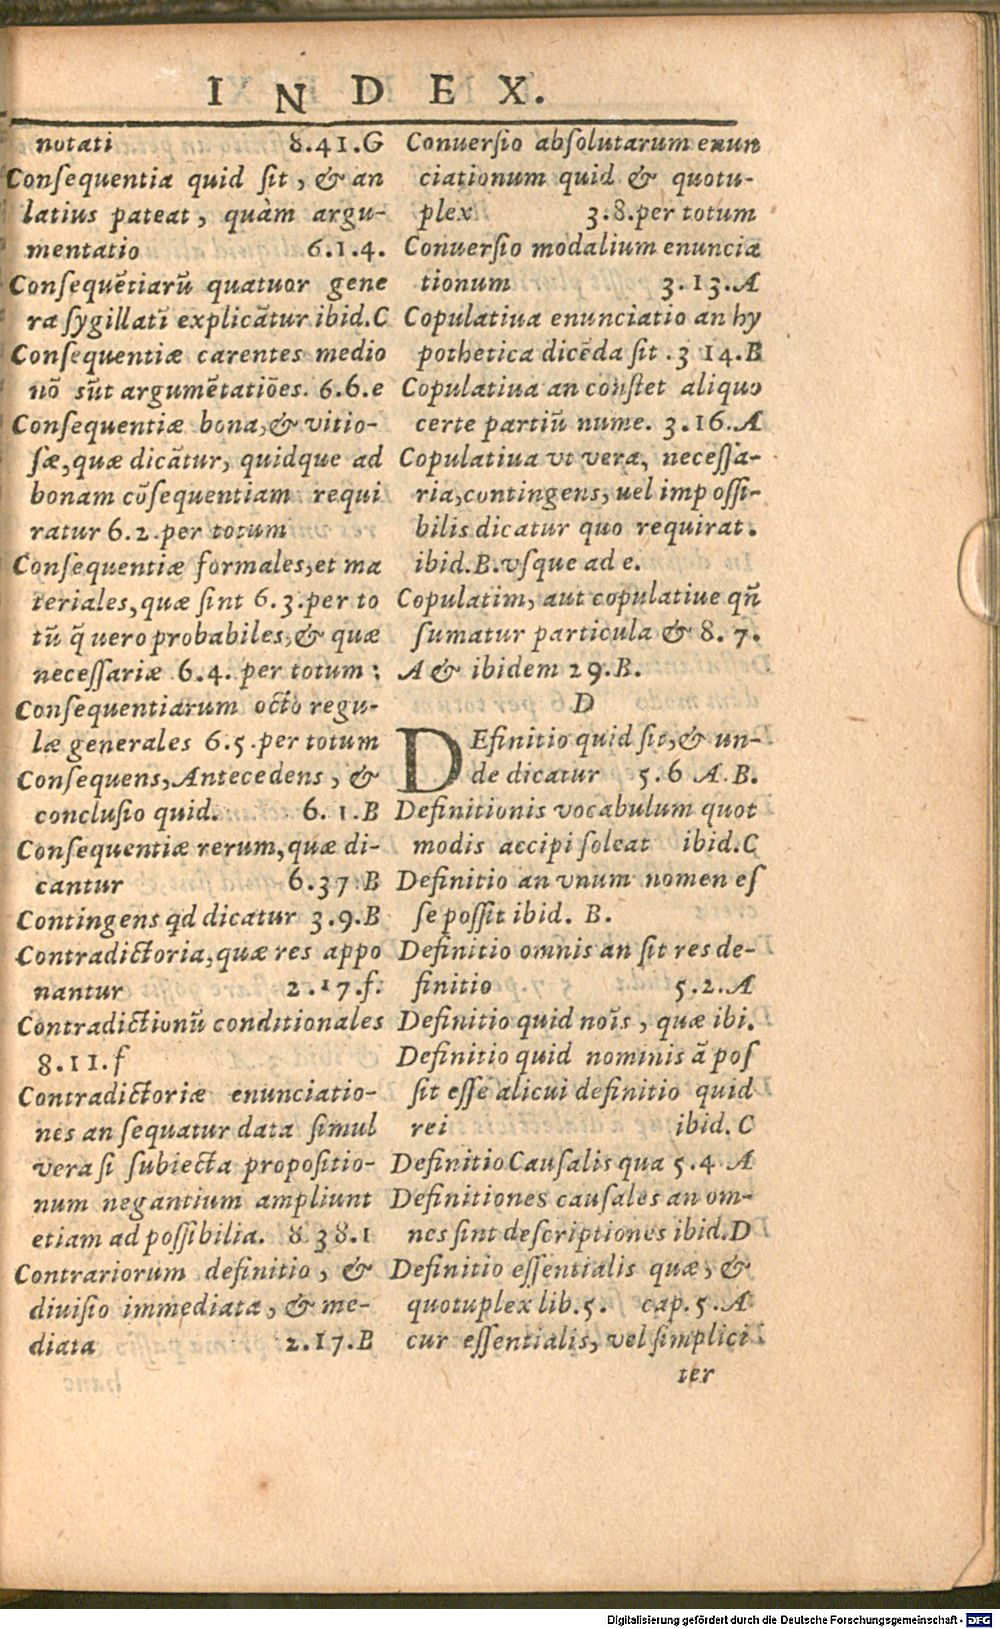 INDEX.
notati 8.41.G
Consequentia quid ſit, & an
latius pateat, quàm argu-
mentatio 6.1.4.
Conſequẽtiarũ quatuor gene
ra ſygillatĩ explicãtur ibid.C
Conſequentiæ carentes medio
nõ sũt argumẽtatiões. 6.6.e
Conſequentiæ bona, & vitio-
ſæ, quæ dicãtur, quidque ad
bonam cõſequentiam requi
ratur 6.2.per totum
Conſequentiæ formales, et ma
teriales, quæ ſint 6.3.per to
tũ q̃ uero probabiles, & quæ
neceſſariæ 6.4. per totum:
Conſequentiarum octo regu-
læ generales 6.5.per totum
Conſequens, Antecedens, &
concluſio quid. 6.1.B
Conſequentiæ rerum, quæ di-
cantur 6.37 B
Contingens qd dicatur 3.9.B
Contradictoria, quæ res appo
nantur 2.17.f.
Contradictionũ conditionales
8.11.f
Contradictoriæ enunciatio-
nes an ſequatur data ſimul
vera ſi ſubiecta propoſitio-
num negantium ampliunt
etiam ad poſſibilia. 8.38.1
Contrariorum definitio, &
diuiſio immediata, & me-
diata 2.17.B
Conuerſio abſolutarum enun
ciationum quid & quotu-
plex 3.8.per totum
Conuerſio modalium enuncia
tionum 3.13.A
Copulatiua enunciatio an hy
pothetica dicẽda ſit. 3 14.B
Copulatiua an conſtet aliquo
certe partiũ nume. 3.16.A
Copulatiua vt vera, neceſſa-
ria, contingens, uel impoſſi-
bilis dicatur quo requirat.
ibid.B.vſque ad e.
Copulatim, aut copulatiue qñ
ſumatur particula & 8.7.
A & ibidem 29.B.
D
DEfinitio quid ſit, & un-
de dicatur 5.6 A.B.
Definitionis vocabulum quot
modis accipi ſoleat ibid.C
Definitio an vnum nomen eſ
ſe poſſit ibid. B.
Definitio omnis an ſit res de-
finitio 5.2.A
Definitio quid noĩs, quæ ibi.
Definitio quid nominis ã poſ
ſit eſſe alicui definitio quid
rei ibid. C
Definitio Cauſalis qua 5.4 A
Definitiones cauſales an om-
nes ſint deſcriptiones ibid.D
Definitio eſſentialis quæ, &
quotuplex lib.5. cap.5.A
cur eſſentialis, vel ſimplici
ter
Digitalisierung gefördert durch die Deutsche Forschungsgemeinschaft - DFG